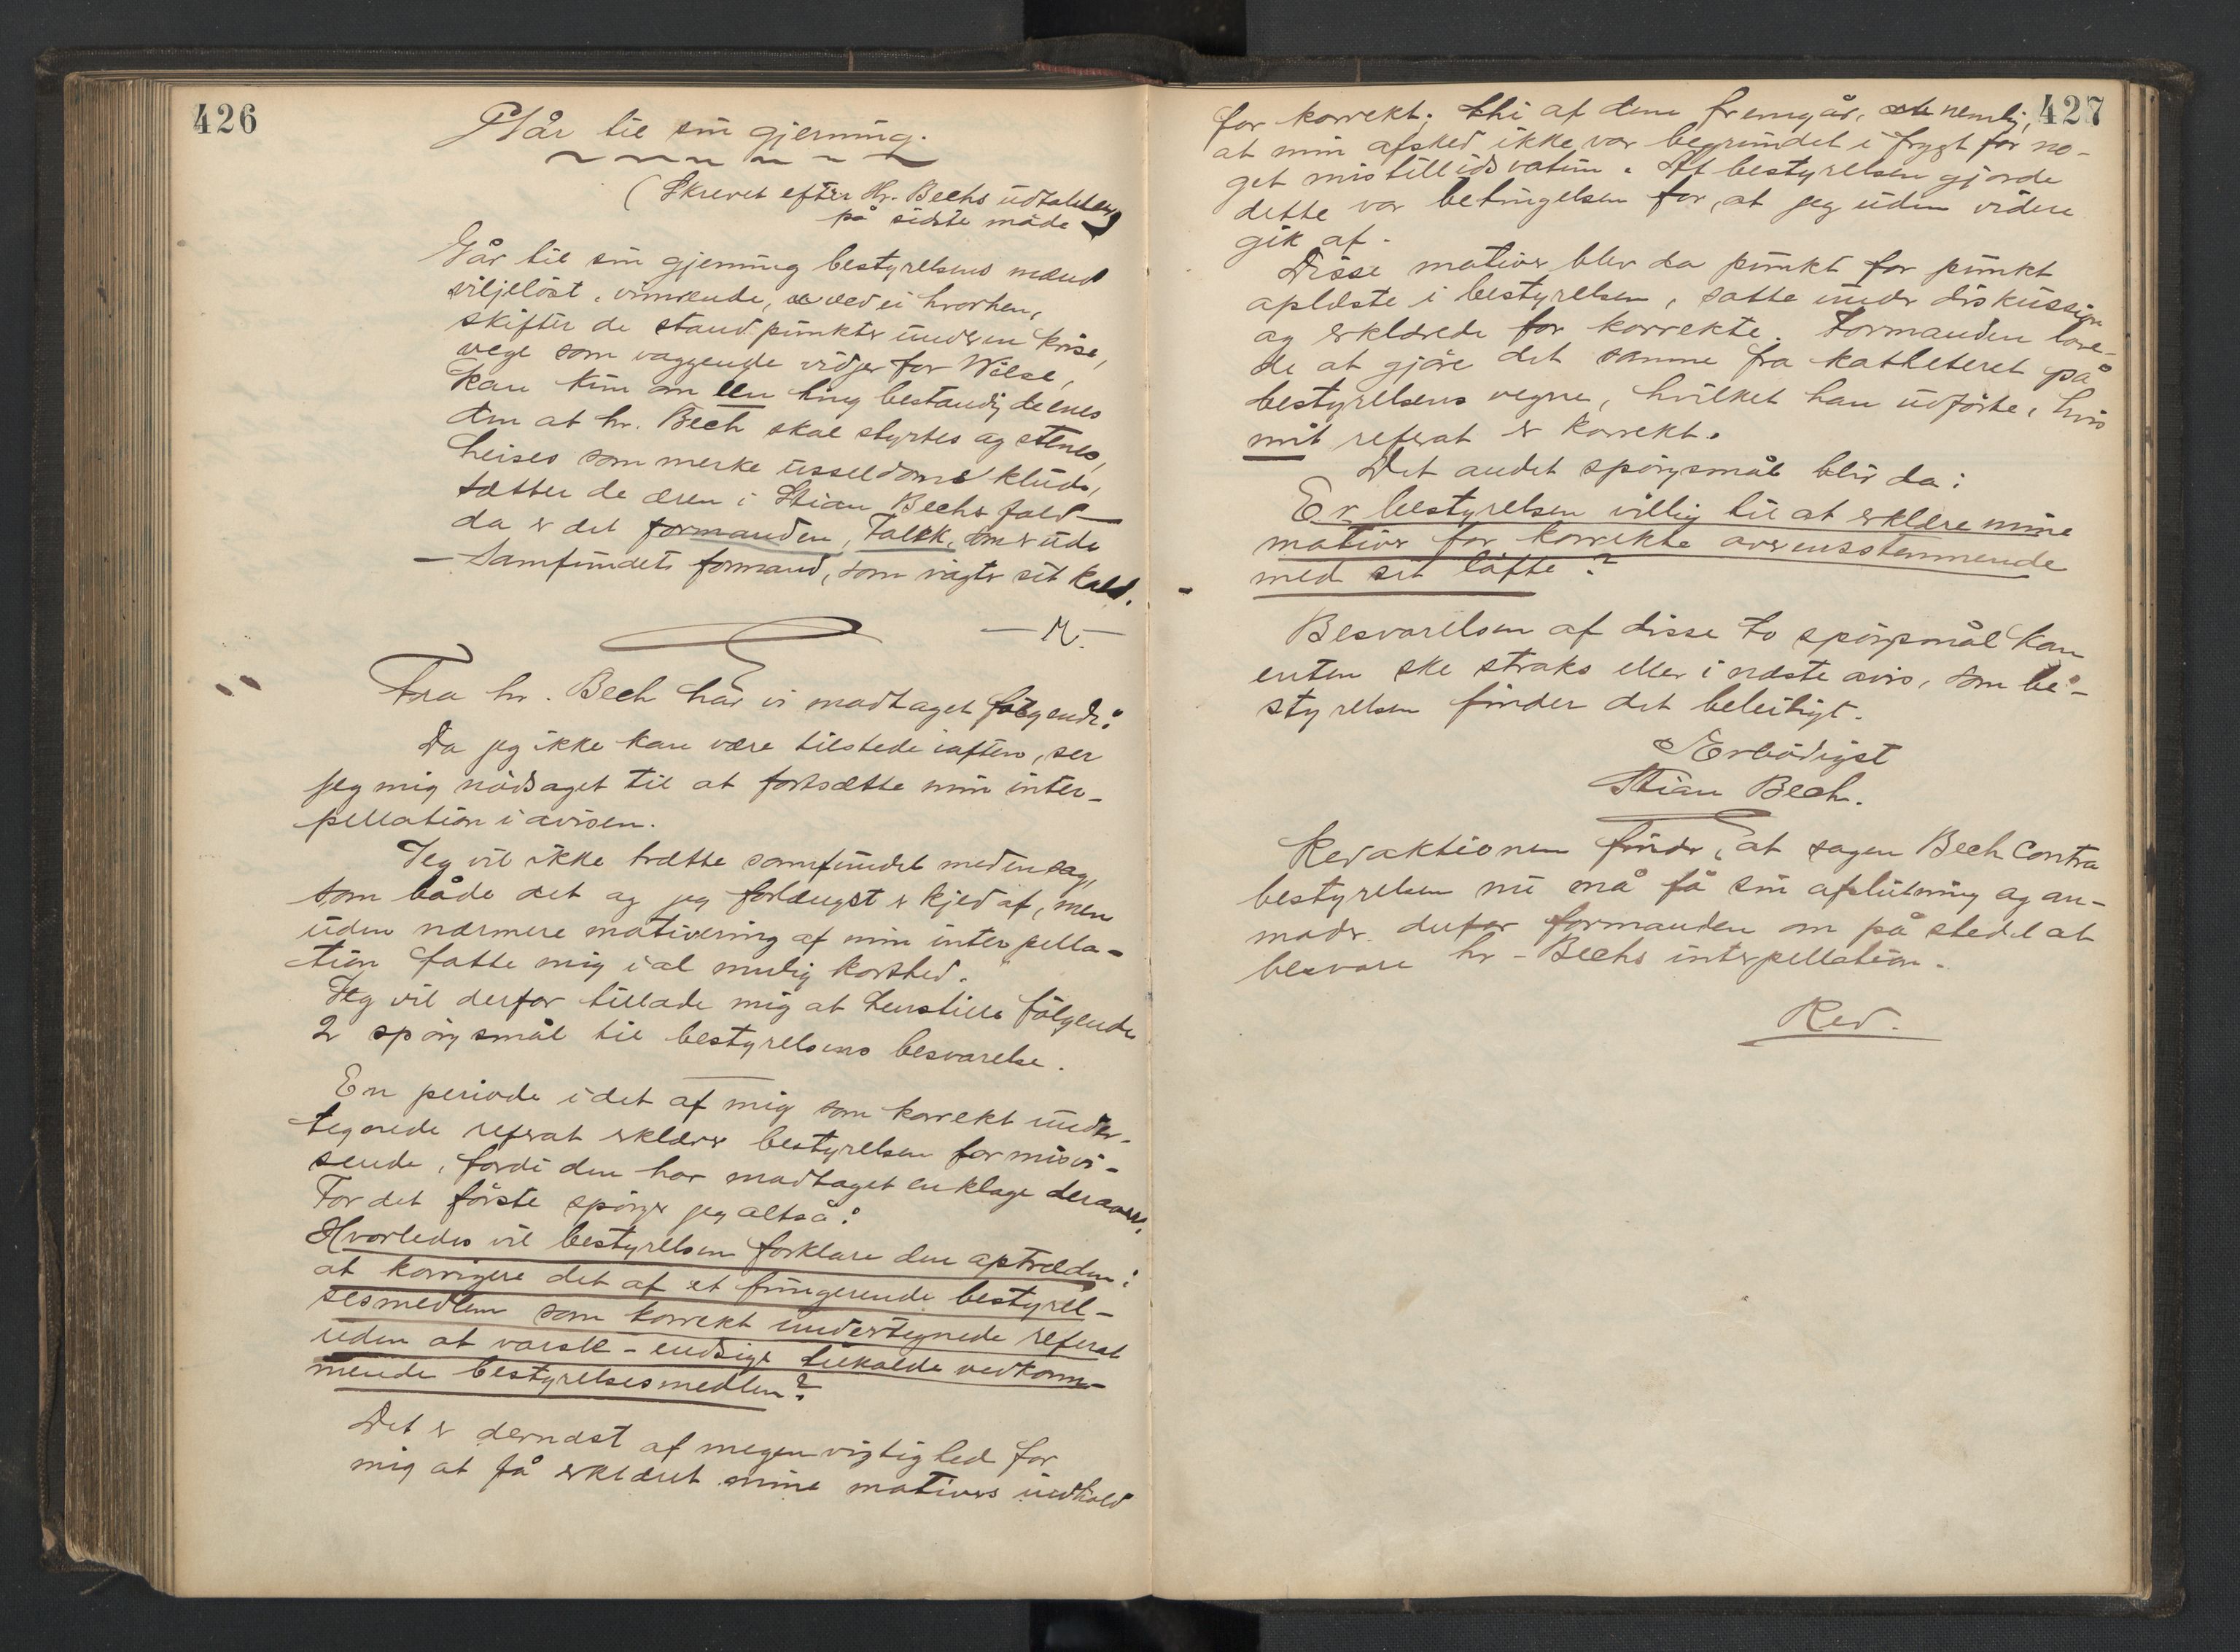 426
Går til sin gjerning.
(Skrevet efter Hr. Bechs udtalelser
på sidste møde)
Går til sin gjerning bestyrelsens mænd
viljeløst, vimrende, ved ei hvorhen,
skifter de standpunkter under en krise,
vege som vaggende vidjer for Wilse,
kan kun om een ting bestandig de enes
Om at hr. Bech skal styrtes og stenes,
heises som merke usseldoms klude,
sætter de æren i Stian Bechs fald —
da er det formanden, Falck, som er ude
— Samfundets formand, som vigter sit kald.
— M. —
Fra hr. Bech har vi modtaget følgende:
Da jeg ikke kan være tilstede iaften, ser
jeg mig nødsaget til at fortsætte min inter-
pellation i avisen.
Jeg vil ikke trætte samfundet med en sag,
som både det og jeg forlængst er kjed af, men
uden nærmere motivering af min interpella-
tion fatte mig i al mulig korthed.
Jeg vil derfor tillade mig at henstille følgende
2 spørgsmål til bestyrelsens besvarelse.
En periode i det af mig som korrekt under-
tegnede referat erklærer bestyrelsen for misvi-
sende, fordi den har modtaget en klage derover.
For det første spørger jeg altså:
Hvorledes vil bestyrelsen forklare den optræden:
at korrigere det af et fungerende bestyrel-
sesmedlem som korrekt undertegnede referat
uden at varsle – endsige tilkalde vedkom-
mende bestyrelsesmedlem?
Det er dernæst af megen vigtighed for
mig at få erklæret mine motivers indhold
427
for korrekt; thi af dem fremgår, nemlig,
at min afsked ikke var begrundet i frygt for no-
get mistillidsvotum. At bestyrelsen gjorde
dette var betingelsen for, at jeg uden videre
gik af.
Disse motiver blev da punkt for punkt
oplæste i bestyrelsen, satte under diskussion
og erklærede for korrekte. Formanden love-
de at gjøre det samme fra katheteret på
bestyrelsens vegne, hvilket han udførte, hvis
mit referat er korrekt.
Det andet spørgsmål blir da:
Er bestyrelsen villig til at erklære mine
motiver for korrekte overensstemmende
med sit løfte?
Besvarelsen af disse to spørgsmål kan
enten ske straks eller i næste avis, som be-
styrelsen finder det beleiligt.
Ærbødigst
Stian Bech.
Redaktionen finder, at sagen Bech contra
bestyrelsen nu må få sin afslutning og an-
moder derfor formanden om på stedet at
besvare hr. Bechs interpellation.
Red.